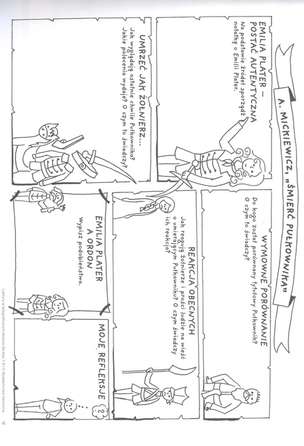 A. MICKIEWICZ, „ŚMIERĆ PUŁKOWNIKA"
EMILIA PLATER –
POSTAĆ AUTENTYCZNA
Na podstawie źródeł sporządź
notatkę o Emilii Plater.
WYMOWNE PORÓWNANIE
Do kogo został porównany tytułowy Pułkownik?
O czym to świadczy?
UMRZEĆ JAK ŻOŁNIERZ...
Jak wyglądają ostatnie chwile Pułkownika?
Jakie polecenia wydaje? O czym to świadczy?
REAKCJA OBECNYCH
Jak reagują żołnierze i prości ludzie na wieść
o umierającym Pułkowniku? O czym świadczy
ich reakcja?
EMILIA PLATER
A ORDON
Wypisz podobieństwa.
MOJE REFLEKSJE